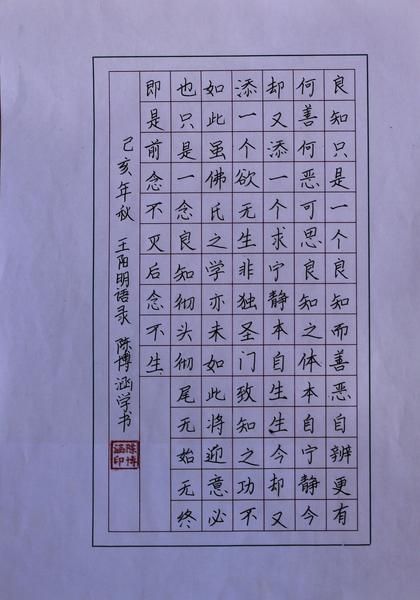 良知只是一个良知而善恶自辨更有
何善何恶可思良知之体本自宁静今
却又添一个求宁静本自生生今却又
添一个欲无生非独圣门致知之功不
如此虽佛氏之学亦未如此将迎意必
也只是一念良知彻头彻尾无始无终
即是前念不灭后念不生
己亥年秋 王阳明语录 陈博涵学书
陈博涵印